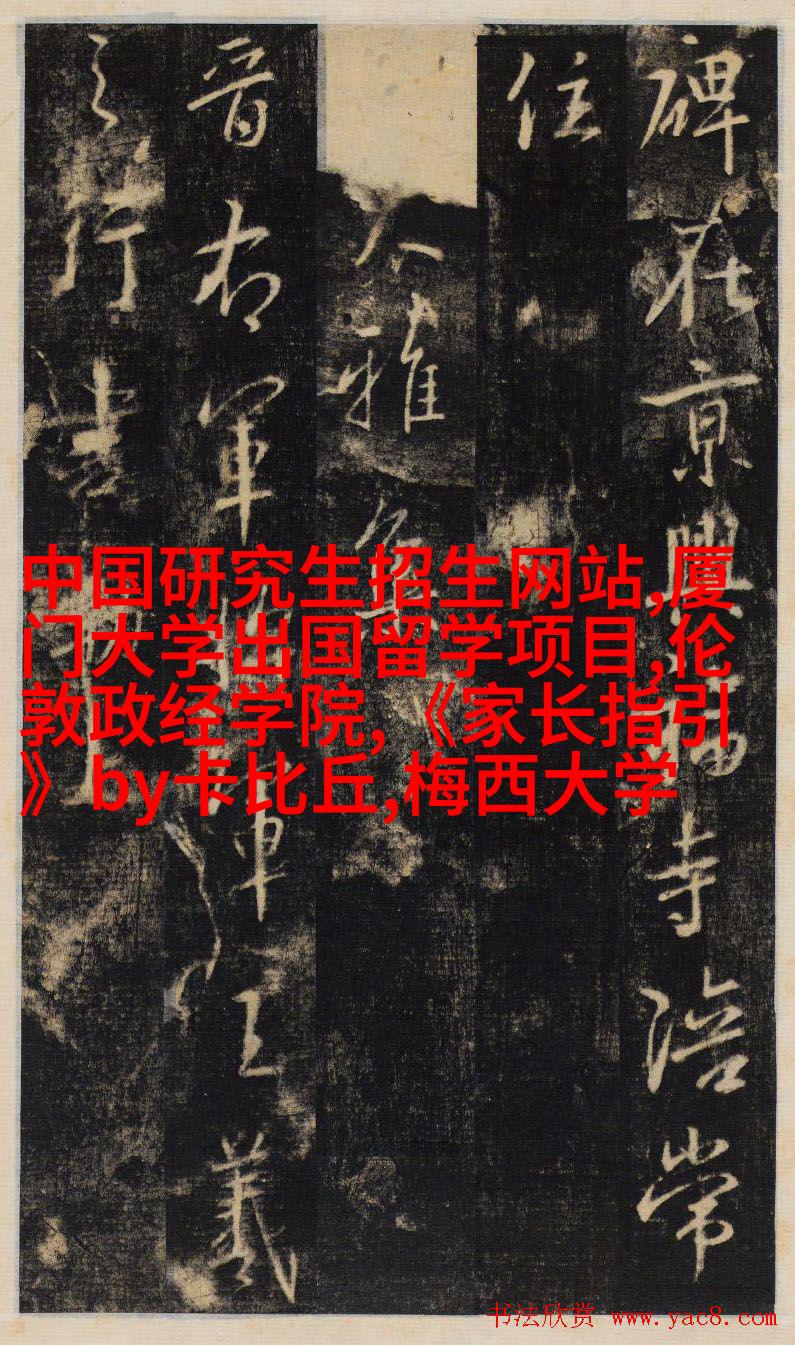 碑在京興福寺陪常
住
大雅集
晋右軍将軍王羲
之行書
中国研究生招生网站,厦
门大学出国留学项目,伦
敦政经学院,《家长指引
》by卡比丘,梅西大学
书法欣赏 www.yac8.com